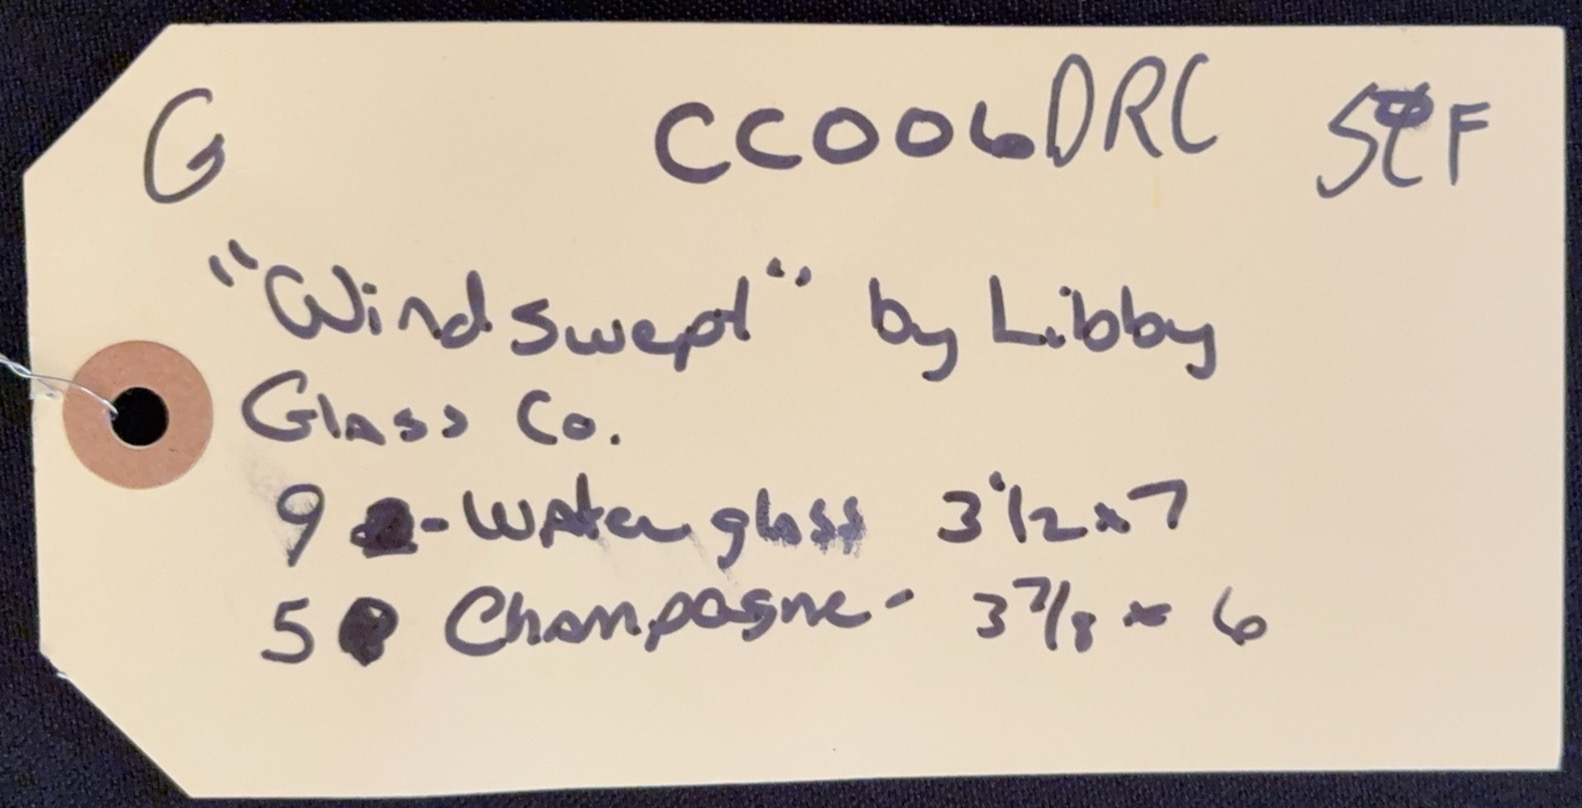 G CC006DRC F
"Windswept" by Libby
Glass Co.
9 - Water glass 3 1/2 x 7
5 Champagne - 3 7/8 x 6